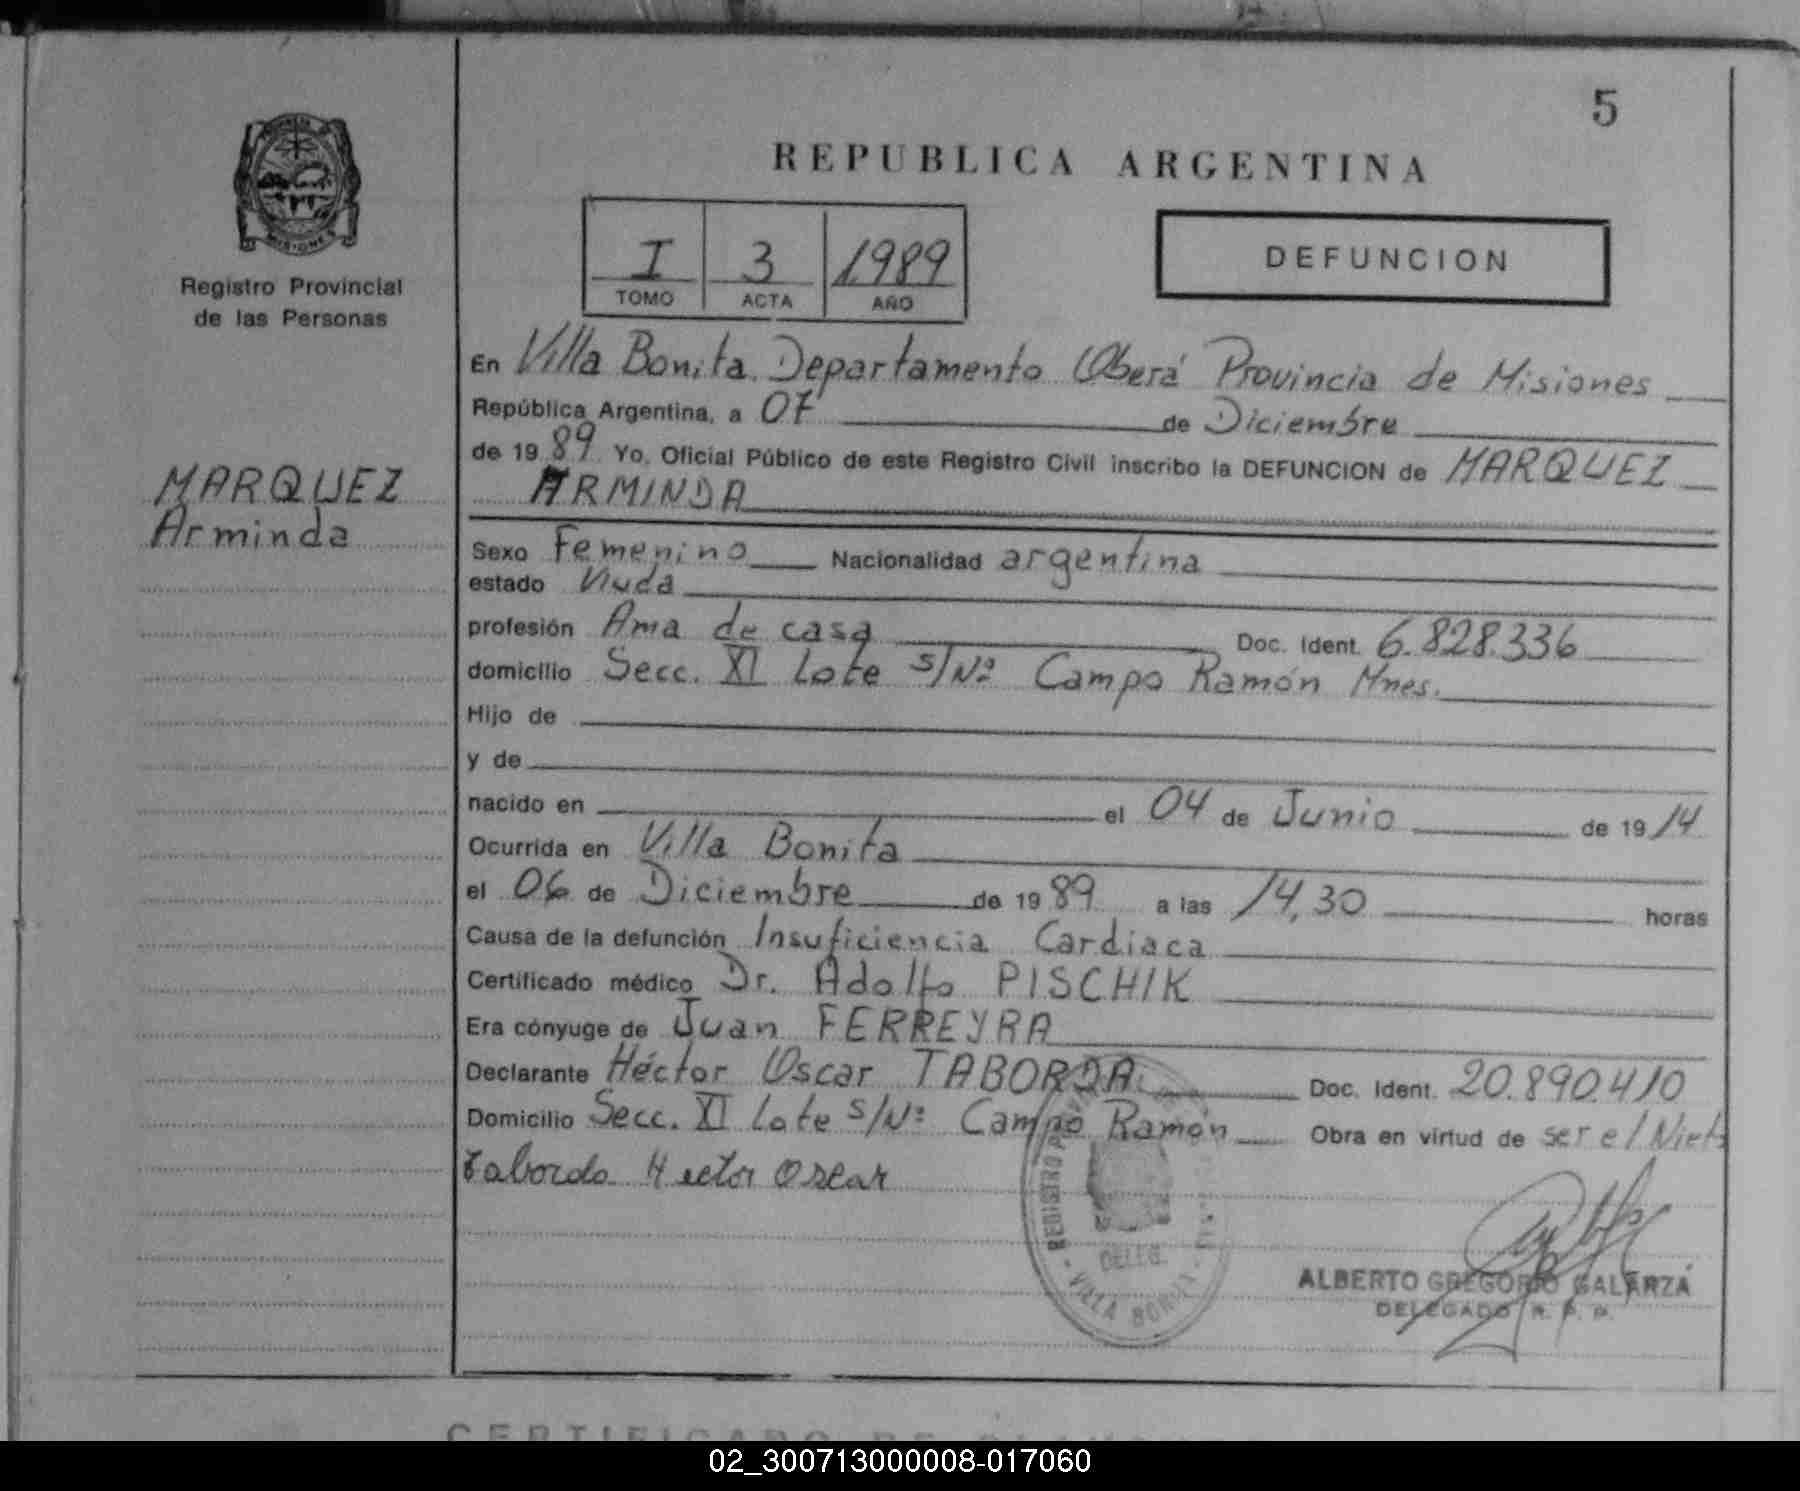 5
REPUBLICA ARGENTINA
MISIONES
Registro Provincial
de las Personas
I 3 1989
TOMO ACTA AÑO
DEFUNCION
MARQUEZ
Arminda
En Villa Bonita Departamento Oberá Provincia de Misiones
República Argentina, a 07 de Diciembre
de 1989 Yo, Oficial Público de este Registro Civil inscribo la DEFUNCION de MARQUEZ
ARMINDA
Sexo Femenino Nacionalidad argentina
estado Viuda
profesión Ama de casa Doc. Ident. 6.828.336
domicilio Secc. XI Lote s/Nº Campo Ramón Mnes.
Hijo de
y de
nacido en el 04 de Junio de 1914
Ocurrida en Villa Bonita
el 06 de Diciembre de 1989 a las 14,30 horas
Causa de la defunción Insuficiencia Cardiaca
Certificado médico Dr. Adolfo PISCHIK
Era cónyuge de Juan FERREYRA
Declarante Héctor Oscar TABORDA Doc. Ident. 20.890.410
Domicilio Secc. XI Lote s/Nº Campo Ramón Obra en virtud de ser el Nieto
Taborda Hector Oscar
REGISTRO
DELEG.
VILLA BONITA
ALBERTO GREGORIO GALARZA
DELEGADO R. P. P.
02_300713000008-017060